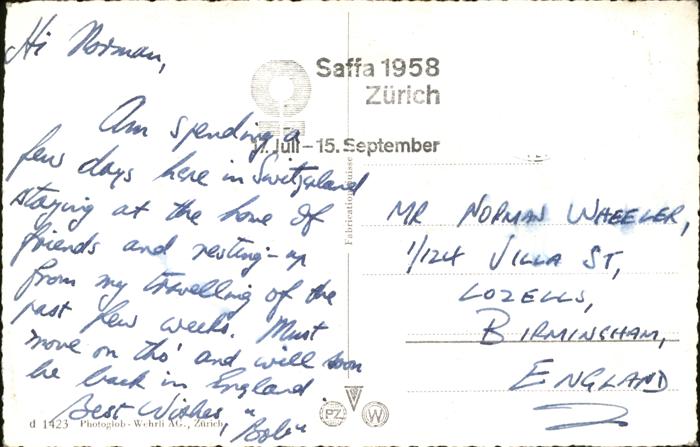 Hi Norman,
Am spending a
few days here in Switzerland
staying at the home of
friends and resting-up
from my travelling of the
past few weeks. Must
move on tho' and will soon
be back in England.
Best Wishes, "Bob"
Saffa 1958
Zürich
17. Juli – 15. September
MR NORMAN WHEELER,
1/124 VILLA ST,
LOZELLS,
BIRMINGHAM,
ENGLAND
d 1423 Photoglob-Wehrli AG., Zürich
PZ W
Fabrication Suisse